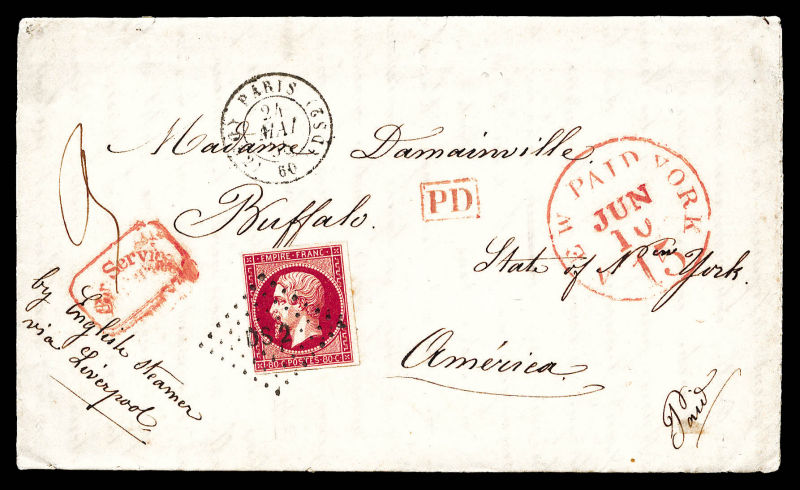 PARIS (DS2)
24
MAI
60
Madame Damainville.
Buffalo.
PD
NEW PAID YORK
JUN
10
15
State of New York.
Service
América.
by English steamer
via Liverpool
EMPIRE FRANC.
DS2
80.C POSTES 80.C
Paid